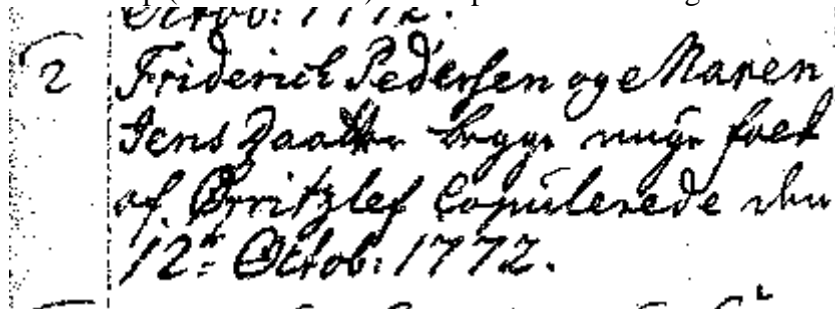 Octob: 1772.
2 Friderich Pedersen og Maren
Jens Daatter begge unge folk
afØrritzlef Copulerede den
12te Octob: 1772.